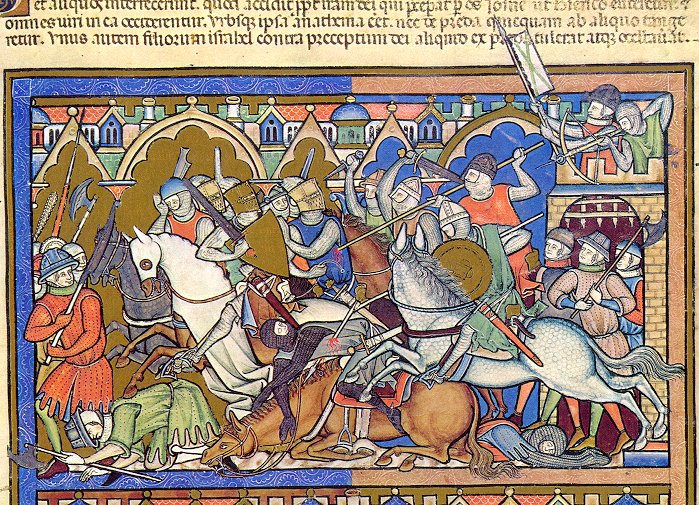 et aliquos interfecerunt. quod accidit ppt iram dei qui p os iosue ut
omnes uiri in ea occiderentur. Vrbsq ipsa anathema eet. nec de preda quicquam ab aliquo tange
retur. Vnus autem filiorum israhel contra preceptum dei aliquid ex preda tulerat atq